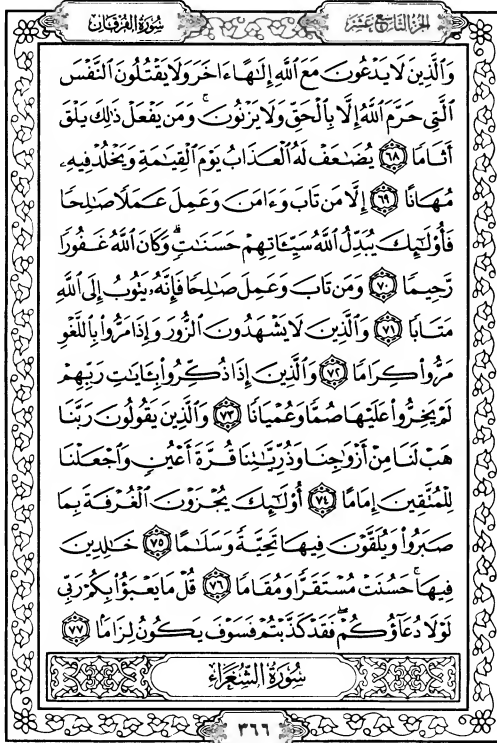 الجزء التاسع عشر
سورة الفرقان
وَٱلَّذِينَ لَا يَدْعُونَ مَعَ ٱللَّهِ إِلَـٰهًا ءَاخَرَ وَلَا يَقْتُلُونَ ٱلنَّفْسَ
ٱلَّتِى حَرَّمَ ٱللَّهُ إِلَّا بِٱلْحَقِّ وَلَا يَزْنُونَ ۚ وَمَن يَفْعَلْ ذَٰلِكَ يَلْقَ
أَثَامًا ٦٨ يُضَـٰعَفْ لَهُ ٱلْعَذَابُ يَوْمَ ٱلْقِيَـٰمَةِ وَيَخْلُدْ فِيهِۦ
مُهَانًا ٦٩ إِلَّا مَن تَابَ وَءَامَنَ وَعَمِلَ عَمَلًا صَـٰلِحًا
فَأُو۟لَـٰٓئِكَ يُبَدِّلُ ٱللَّهُ سَيِّـَٔاتِهِمْ حَسَنَـٰتٍ ۗ وَكَانَ ٱللَّهُ غَفُورًا
رَّحِيمًا ٧٠ وَمَن تَابَ وَعَمِلَ صَـٰلِحًا فَإِنَّهُۥ يَتُوبُ إِلَى ٱللَّهِ
مَتَابًا ٧١ وَٱلَّذِينَ لَا يَشْهَدُونَ ٱلزُّورَ وَإِذَا مَرُّوا۟ بِٱللَّغْوِ
مَرُّوا۟ كِرَامًا ٧٢ وَٱلَّذِينَ إِذَا ذُكِّرُوا۟ بِـَٔايَـٰتِ رَبِّهِمْ
لَمْ يَخِرُّوا۟ عَلَيْهَا صُمًّا وَعُمْيَانًا ٧٣ وَٱلَّذِينَ يَقُولُونَ رَبَّنَا
هَبْ لَنَا مِنْ أَزْوَٰجِنَا وَذُرِّيَّـٰتِنَا قُرَّةَ أَعْيُنٍ وَٱجْعَلْنَا
لِلْمُتَّقِينَ إِمَامًا ٧٤ أُو۟لَـٰٓئِكَ يُجْزَوْنَ ٱلْغُرْفَةَ بِمَا
صَبَرُوا۟ وَيُلَقَّوْنَ فِيهَا تَحِيَّةً وَسَلَـٰمًا ٧٥ خَـٰلِدِينَ
فِيهَا ۚ حَسُنَتْ مُسْتَقَرًّا وَمُقَامًا ٧٦ قُلْ مَا يَعْبَؤُا۟ بِكُمْ رَبِّى
لَوْلَا دُعَآؤُكُمْ ۖ فَقَدْ كَذَّبْتُمْ فَسَوْفَ يَكُونُ لِزَامًۢا ٧٧
سُورَةُ الشُّعَرَاءِ
٣٦٦